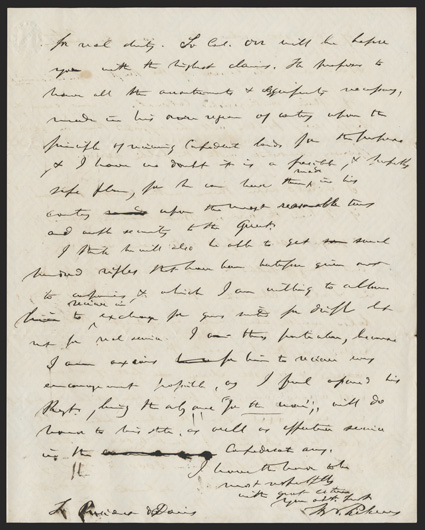 for real duty. So Col. Orr will be before
you with the highest claims. He proposes to
have all the accoutrements & equipments necessary,
made in his own region of country upon the
principle of receiving Confederate bonds for the purpose
, & I have no doubt it is a feasible, & perfectly
safe plan, for he can have them made in his
country upon the most reasonable terms
and with security to the Govt.
I think he will also be able to get some
hundred rifles that have been heretofore given out
to companies, & which I am willing to allow
him to receive in exchange for guns suited for drill but
not for real service. I am thus particular, because
I am anxious for him to receive every
encouragement possible, as I feel assured his
Regt, being the only one "for the war", will do
honor to his state, as well as effective service
in the Confederate army.
I have the honor to be
most respectfully
with great esteem
your obt Servt
To President Davis